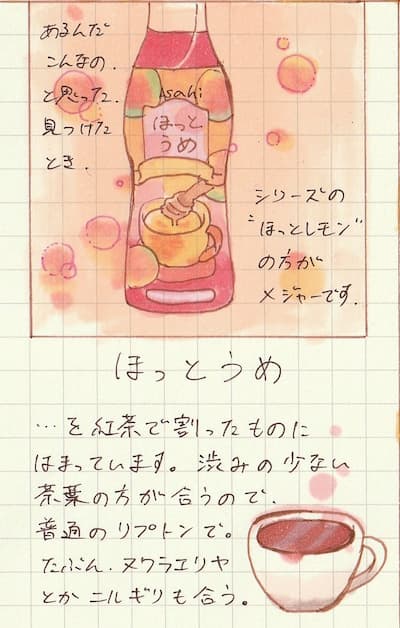 あるんだ
こんなの.
と思った.
見つけた
とき.
Asahi
ほっと
うめ
シリーズの
"ほっとレモン"
の方が
メジャーです.
ほっとうめ
…を紅茶で割ったものに
はまっています。渋みの少ない
茶葉の方が合うので、
普通のリプトンで。
たぶん、ヌワラエリヤ
とかニルギリも合う。